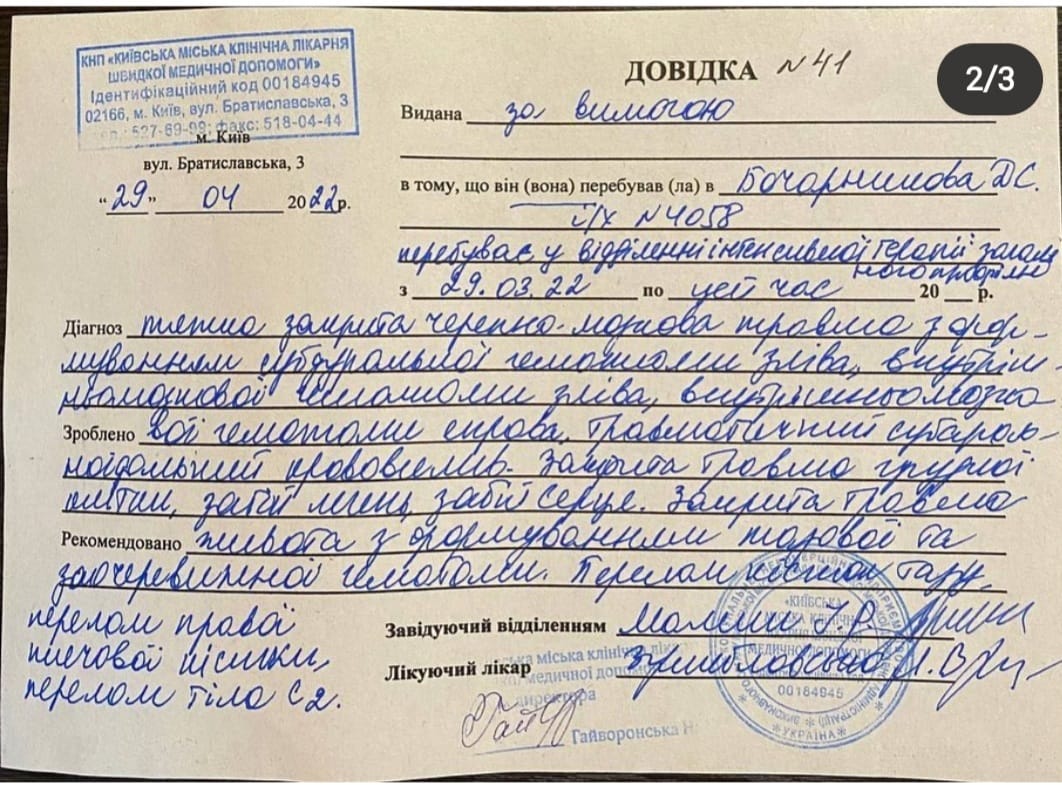 КНП «КИЇВСЬКА МІСЬКА КЛІНІЧНА ЛІКАРНЯ
ШВИДКОЇ МЕДИЧНОЇ ДОПОМОГИ»
Ідентифікаційний код 00184945
02166, м. Київ, вул. Братиславська, 3
тел.: 527-69-99; факс: 518-04-44
м. Київ
вул. Братиславська, 3
"29" 04 2022р.
ДОВІДКА №41
2/3
Видана за вимогою
в тому, що він (вона) перебував (ла) в Бочарникова Д.С.
і/х №4058
перебуває у відділенні інтенсивної терапії загаль
ного профілю
з 29.03.22 по цей час 20 р.
Діагноз тяжка закрита черепно-мозкова травма з фор-
муванням субдуральної гематоми зліва, внутріш-
ньомозкової гематоми зліва, внутрішньомозко
Зроблено вої гематоми справа, травматичний субарах-
ноїдальний крововилив. Закрита травма грудної
клітки, забій легень, забій серця. Закрита травма
Рекомендовано живота з формуванням тазової та
заочеревинної гематоми. Перелом кісток тазу,
перелом правої
плечової кістки,
перелом тіла С2.
Завідуючий відділенням
Лікуючий лікар
ська міська клінічна ліка
медичної допомо
директора
Гайворонська Н
«КИЇВСЬКА
МІСЬКА КЛІНІЧНА
ЛІКАРНЯ ШВИДКОЇ
МЕДИЧНОЇ ДОПОМОГИ»
00184945
*УКРАЇНА*